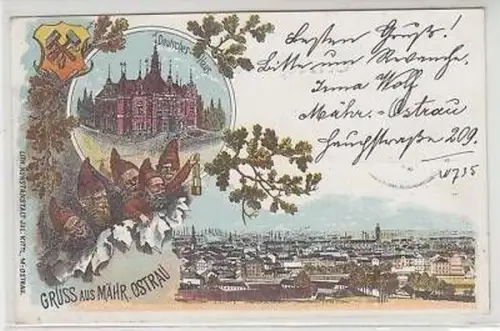 Deutsches Haus
Besten Gruß!
Bitte um Revanche.
Irma Wolf
Mähr.-Ostrau
straße 209.
10735
LITH. KUNSTANSTALT JUL. KITTL, M.-OSTRAU.
GRUSS AUS MÄHR. OSTRAU